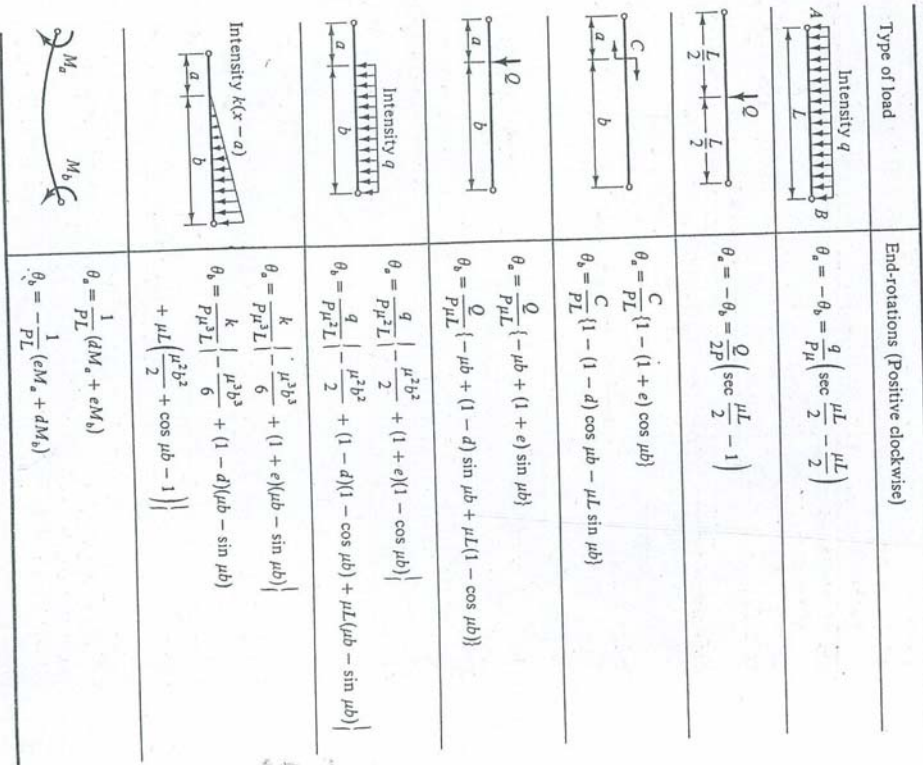 Type of load
End-rotations (Positive clockwise)
Intensity q
A
B
L
θₐ = − θ_b = q/Pμ (sec μL/2 − μL/2)
Q
L/2
L/2
θₐ = − θ_b = Q/2P (sec μL/2 − 1)
C
a
b
θₐ = C/PL {1 − (1 + e) cos μb}
θ_b = C/PL {1 − (1 − d) cos μb − μL sin μb}
Q
a
b
θₐ = Q/PμL {− μb + (1 + e) sin μb}
θ_b = Q/PμL {− μb + (1 − d) sin μb + μL(1 − cos μb)}
Intensity q
a
b
θₐ = q/Pμ²L {− μ²b²/2 + (1 + e)(1 − cos μb)}
θ_b = q/Pμ²L {− μ²b²/2 + (1 − d)(1 − cos μb) + μL(μb − sin μb)}
Intensity k(x − a)
a
b
θₐ = k/Pμ³L {− μ³b³/6 + (1 + e)(μb − sin μb)}
θ_b = k/Pμ³L {− μ³b³/6 + (1 − d)(μb − sin μb)
+ μL(μ²b²/2 + cos μb − 1)}
Mₐ
M_b
θₐ = 1/PL (dMₐ + eM_b)
θ_b = − 1/PL (eMₐ + dM_b)